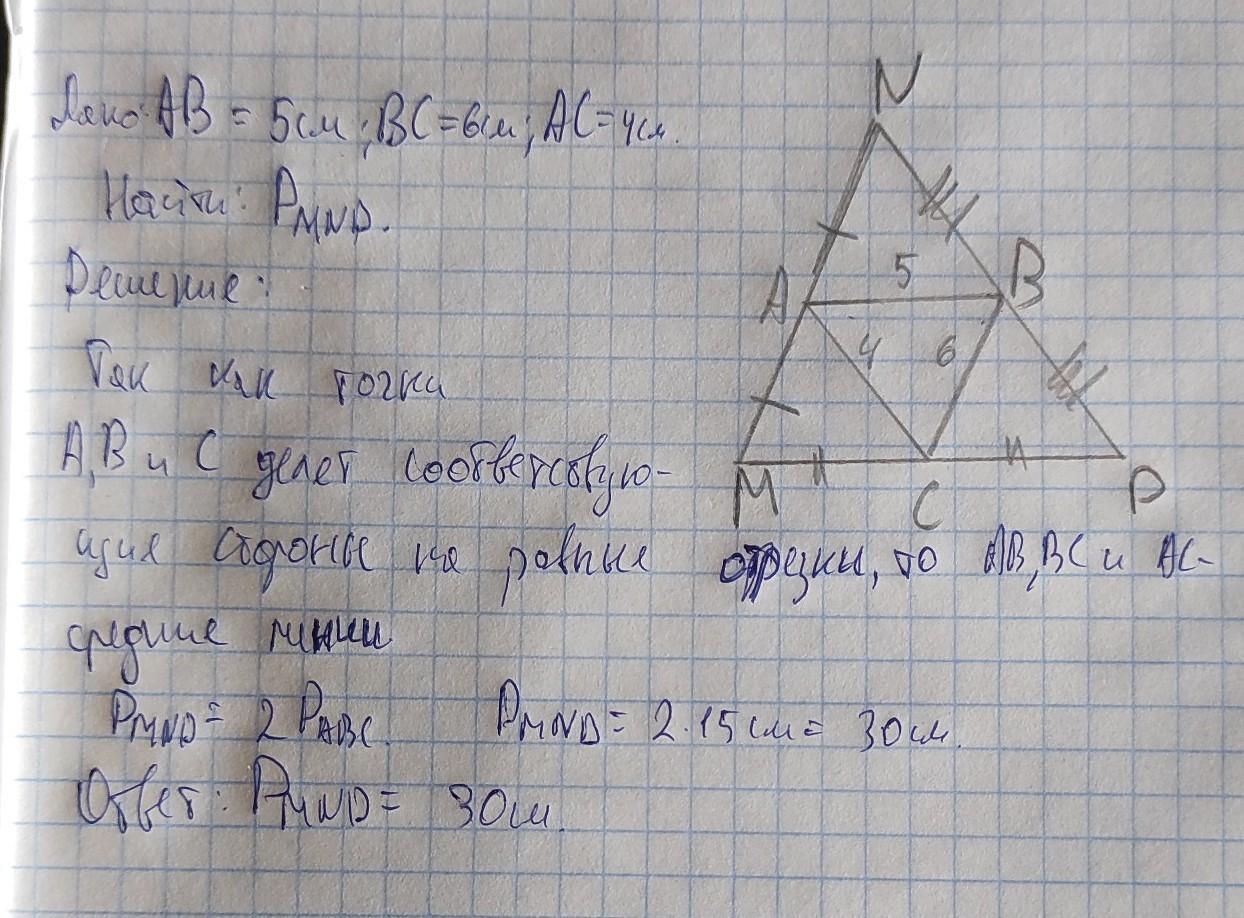 Дано: AB = 5см; BC=6см; AC=4см.
Найти: P_MNP.
Решение:
Так как точки
A, B и C делет соответсвую-
щие стороны на равные отрезки, то AB, BC и AC-
средние линии
P_MNP = 2 P_ABC. P_MNP = 2·15см = 30см.
Ответ: P_MNP = 30см.
N
A 5 B
4 6
M C P